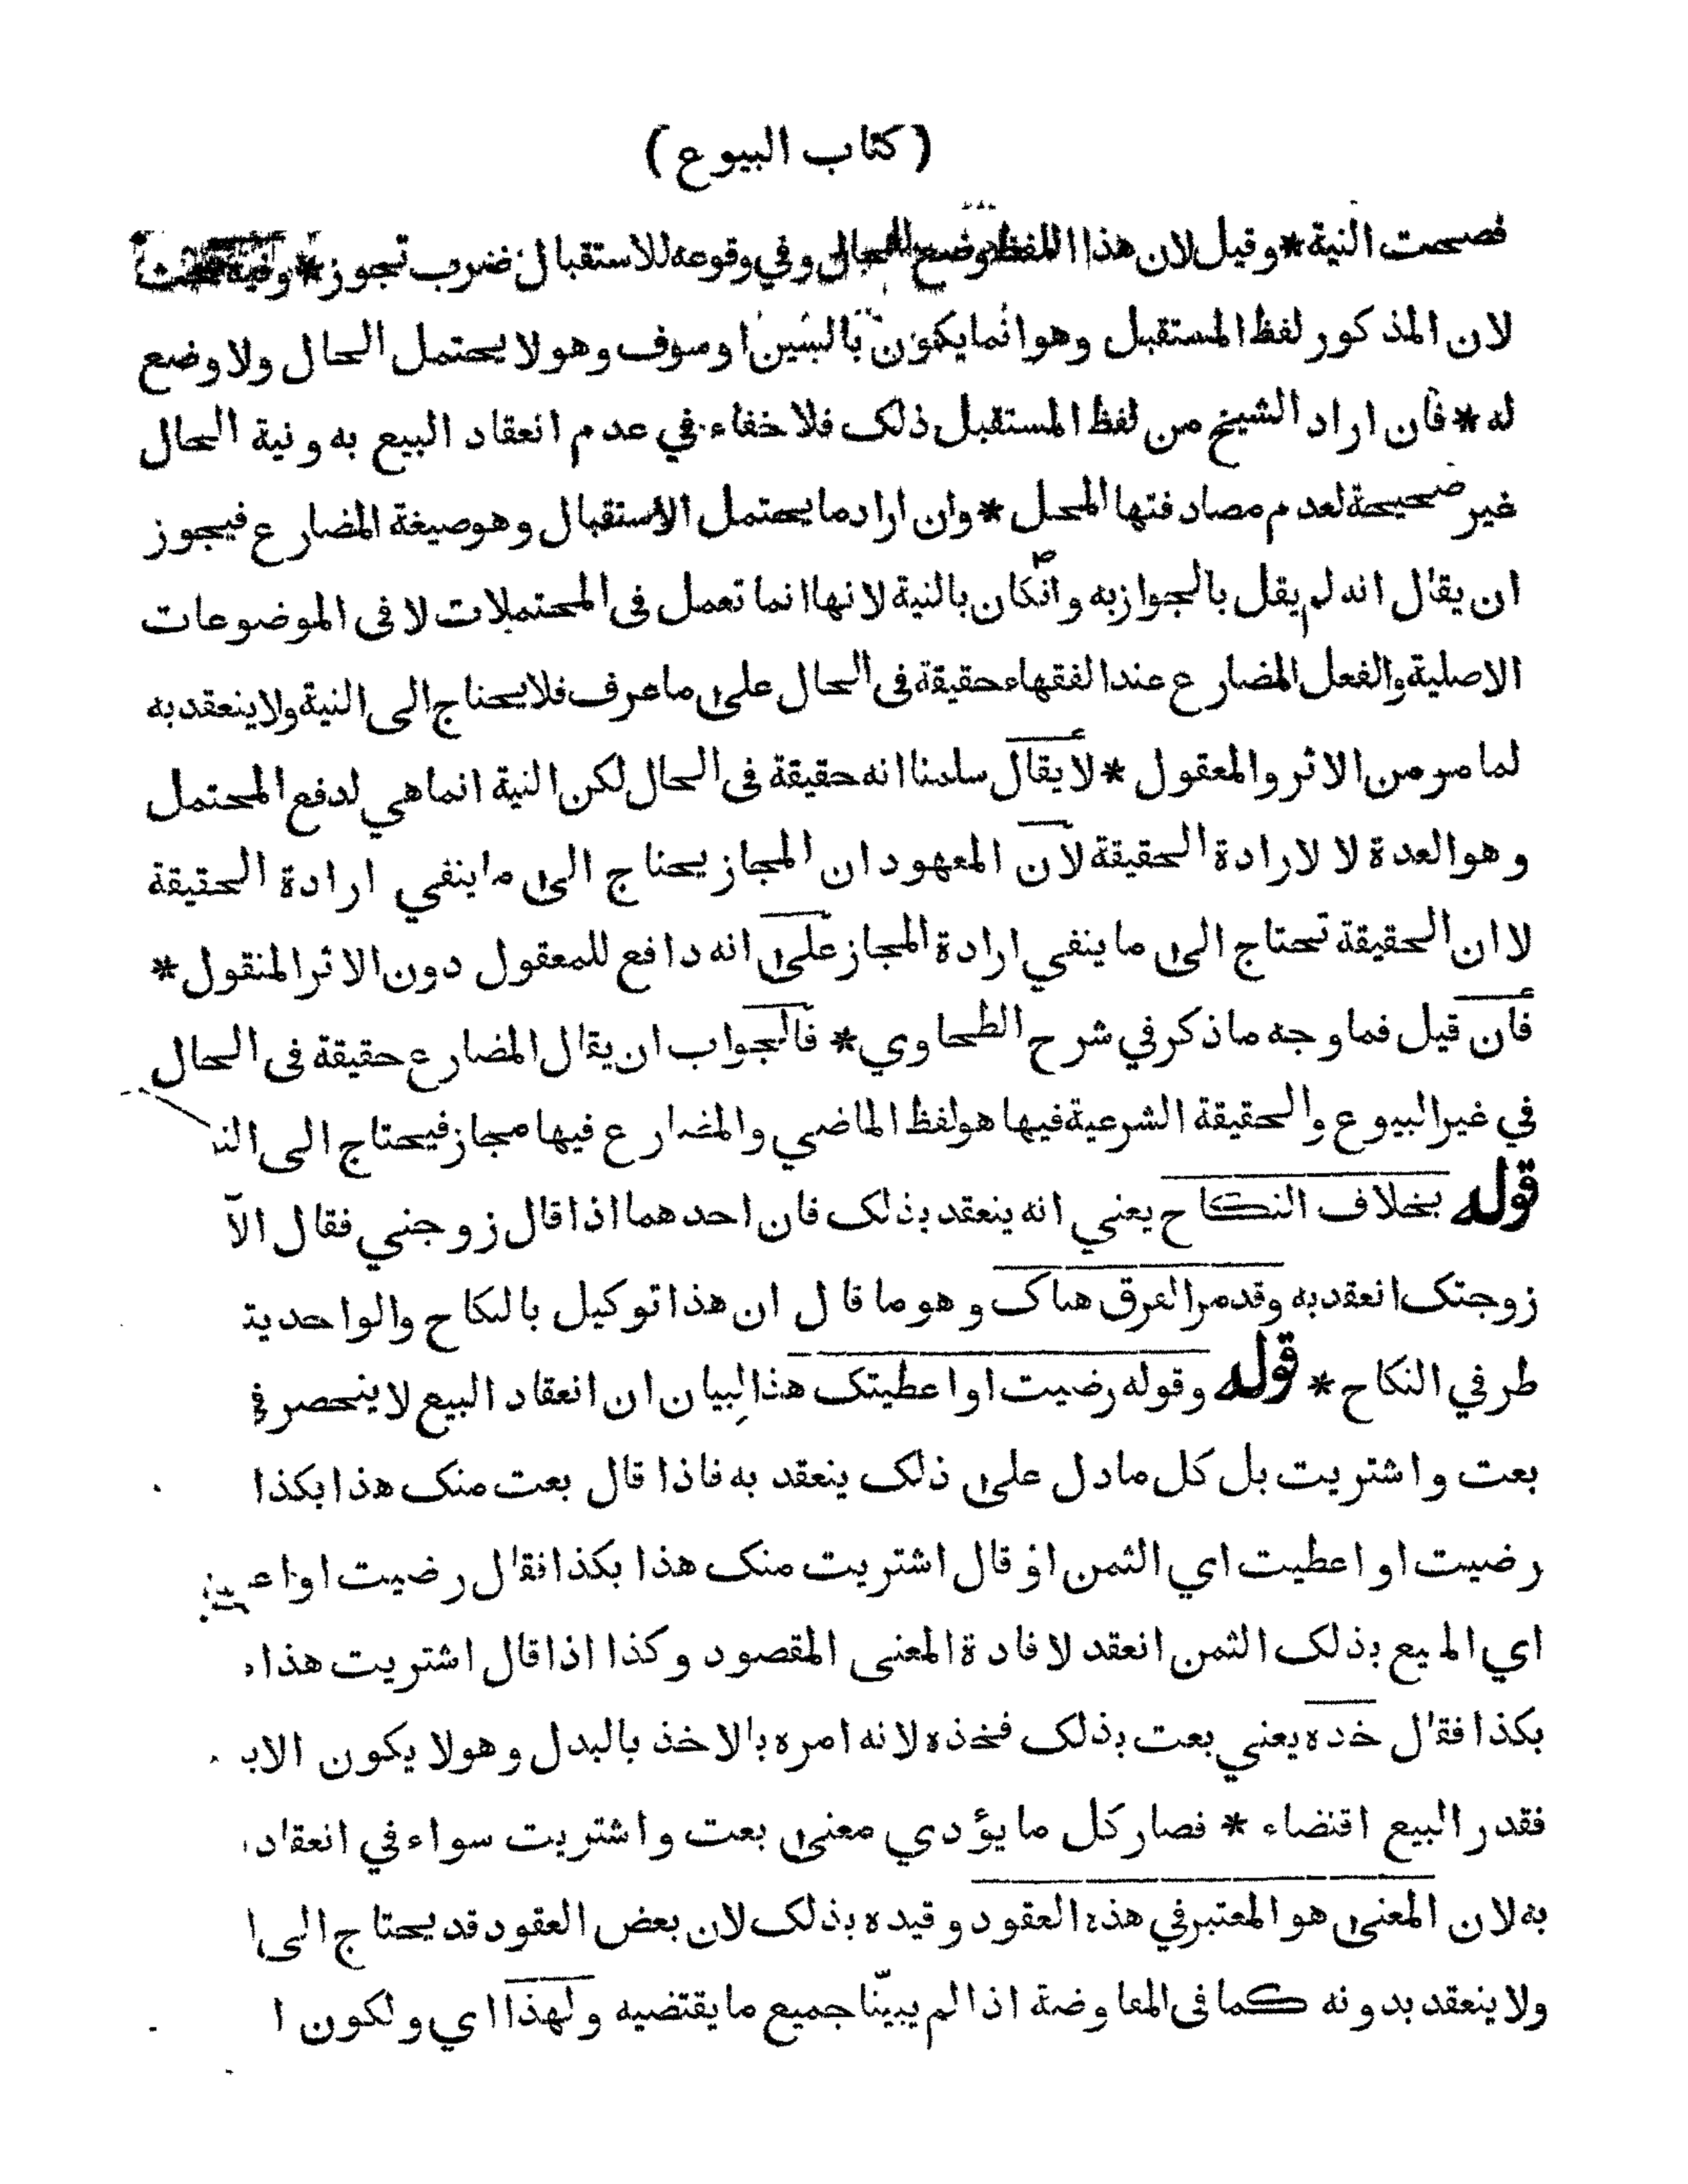 ( كتاب البيوع )
فصحت النية * وقيل لان هذا اللفظ وضع للحال وفي وقوعه للاستقبال ضرب تجوز * وفيه بحث
لان المذكور لفظ المستقبل وهو انما يكون بالسين او سوف وهو لا يحتمل الحال ولا وضع
له * فان اراد الشيخ من لفظ المستقبل ذلك فلا خفاء في عدم انعقاد البيع به ونية الحال
غير صحيحة لعدم مصادفتها المحل * وان اراد ما يحتمل الاستقبال وهو صيغة المضارع فيجوز
ان يقال انه لم يقل بالجواز به وان كان بالنية لانها انما تعمل فى المحتملات لا فى الموضوعات
الاصلية والفعل المضارع عند الفقهاء حقيقة فى الحال على ما عرف فلا يحتاج الى النية ولا ينعقد به
لما مر من الاثر والمعقول * لا يقال سلمنا انه حقيقة فى الحال لكن النية انما هي لدفع المحتمل
وهو العدة لا لارادة الحقيقة لان المعهود ان المجاز يحتاج الى ما ينفي ارادة الحقيقة
لا ان الحقيقة تحتاج الى ما ينفي ارادة المجاز على انه دافع للمعقول دون الاثر المنقول *
فان قيل فما وجه ما ذكر في شرح الطحاوي * فالجواب ان يقال المضارع حقيقة فى الحال
في غير البيوع والحقيقة الشرعية فيها هو لفظ الماضي والمضارع فيها مجاز فيحتاج الى
قوله بخلاف النكاح يعني انه ينعقد بذلك فان احدهما اذا قال زوجني فقال
زوجتك انعقد به وقد مر الفرق هناك وهو ما قال ان هذا توكيل بالنكاح والواحد
طرفي النكاح * قوله وقوله رضيت او اعطيتك هذا لبيان ان انعقاد البيع لا ينحصر في
بعت واشتريت بل كل ما دل على ذلك ينعقد به فاذا قال بعت منك هذا بكذا
رضيت او اعطيت اي الثمن او قال اشتريت منك هذا بكذا فقال رضيت او
اي المبيع بذلك الثمن انعقد لافادة المعنى المقصود وكذا اذا قال اشتريت هذا
بكذا فقال خده يعني بعت بذلك فخذه لانه امره بالاخذ بالبدل وهو لا يكون
فقدر البيع اقتضاء * فصار كل ما يؤدي معنى بعت واشتريت سواء في انعقاد
به لان المعنى هو المعتبر في هذه العقود وقيده بذلك لان بعض العقود قد يحتاج الى
ولا ينعقد بدونه كما فى المفاوضة اذا لم يبينا جميع ما يقتضيه ولهذا اي ولكون